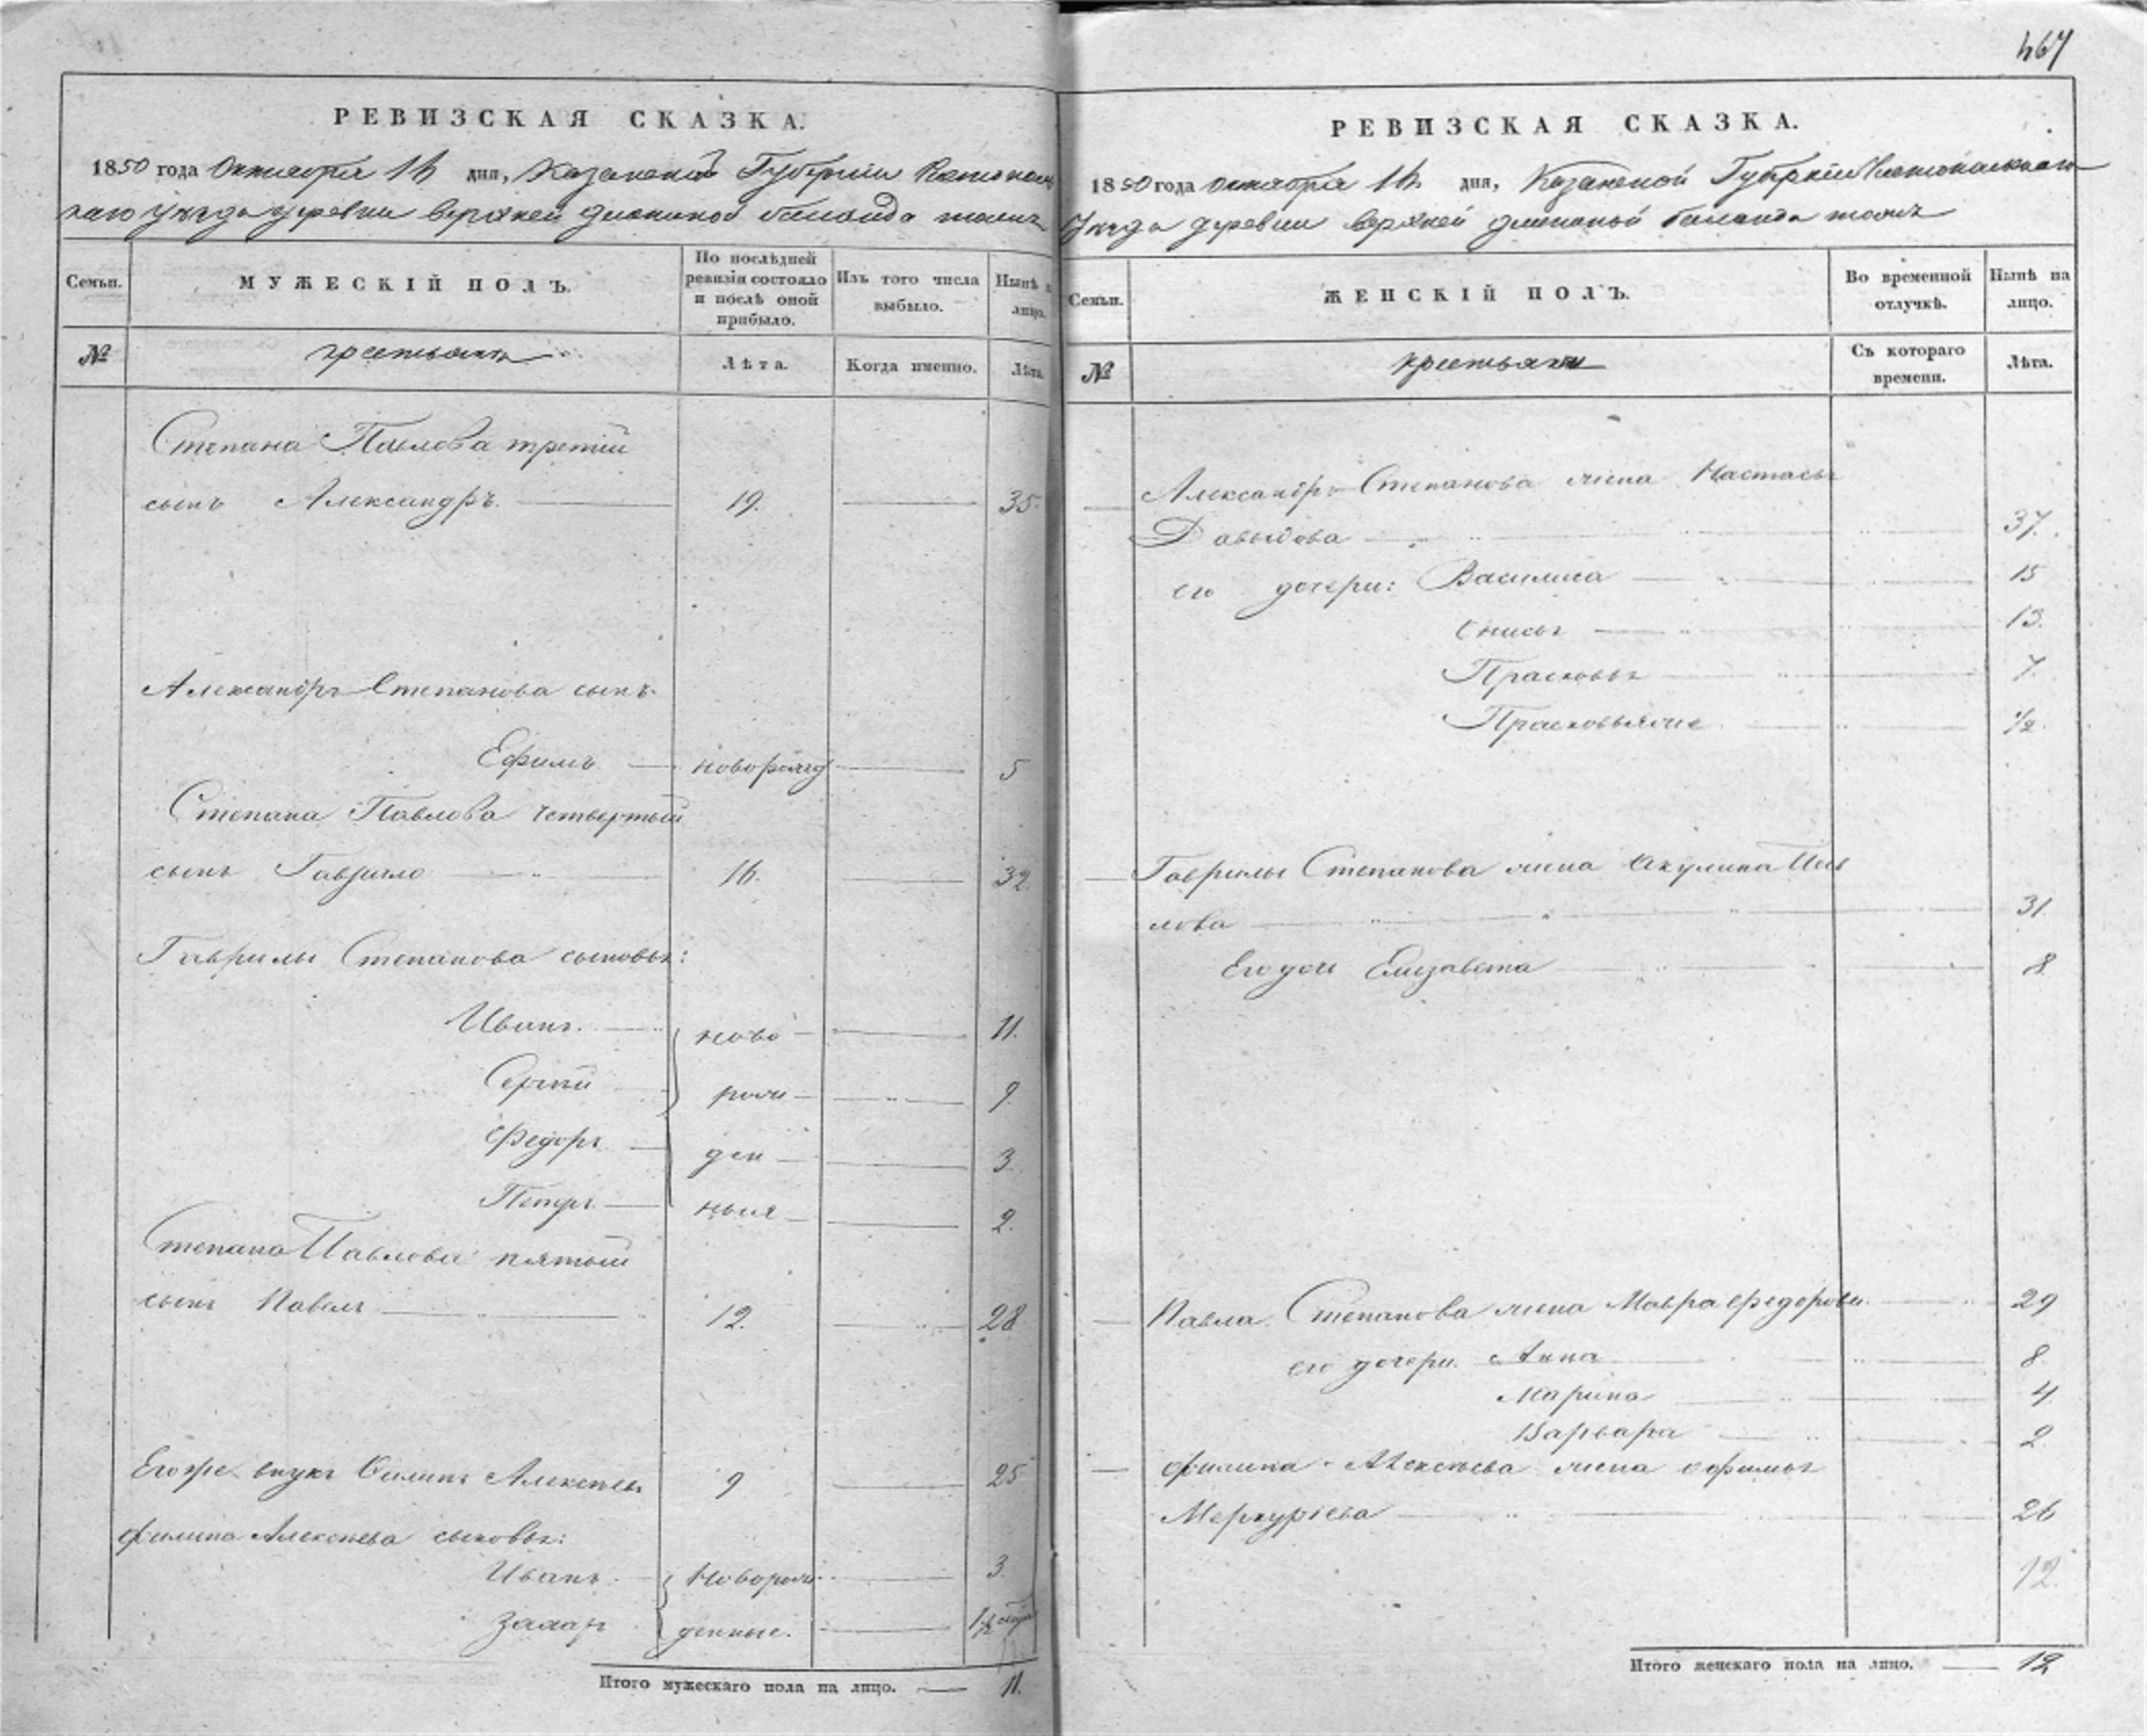 467
РЕВИЗСКАЯ СКАЗКА.
1850 года Октября 16 дня, Казанской Губернии
Уезда деревни верхней
Семьи.
МУЖЕСКІЙ ПОЛЪ.
По послѣдней ревизіи состояло и послѣ оной прибыло.
Изъ того числа выбыло.
Нынѣ на лицо.
№
крестьянъ
Лѣта.
Когда именно.
Лѣта.
Степана Павлова третій
сынъ Александръ. 19. 35.
Александръ Степанова сынъ
Ефимъ новорожд 5
Степана Павлова четвертый
сынъ Гаврило 16. 32.
Гаврилы Степанова сыновья:
Иванъ ново 11.
Сергѣй рож 9.
Федоръ ден 3.
Петръ ныя 2.
Степана Павлова пятый
сынъ Павелъ 12. 28
Егоже внукъ Филипъ Алексѣевъ 9 25
Филипа Алексѣева сыновья:
Иванъ Новорож 3.
Захаръ денные. 1/2
Итого мужескаго пола на лицо. 11.
РЕВИЗСКАЯ СКАЗКА.
1850 года октября 16 дня, Казанской Губернии
Уезда деревни верхней
Семьи.
ЖЕНСКІЙ ПОЛЪ.
Во временной отлучкѣ.
Нынѣ на лицо.
№
крестьяне
Съ котораго времени.
Лѣта.
Александръ Степанова жена Настасья
Давыдова 37.
его дочери: Василиса 15
Онисья 13.
Прасковья 7.
Прасковьяже 1/2.
Гаврилы Степанова жена Акулина
лова 31.
Его дочь Елизавета 8.
Павла Степанова жена Мавра Федорова 29
его дочери Анна 8.
Марина 4.
Варвара 2
Филипа Алексѣева жена Софимья
Меркуріева 26
12.
Итого женскаго пола на лицо. 12